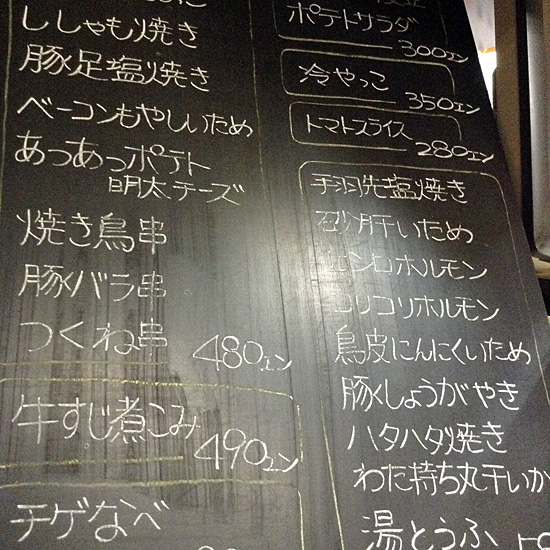 ししゃも焼き
豚足塩焼き
ベーコンもやしいため
あつあつポテト
明太チーズ
焼き鳥串
豚バラ串
つくね串
480エン
牛すじ煮こみ
490エン
チゲなべ
ポテトサラダ
300エン
冷やっこ
350エン
トマトスライス
280エン
手羽先塩焼き
砂肝いため
ホルモン
コリコリホルモン
鳥皮にんにくいため
豚しょうがやき
ハタハタ焼き
わた持ち丸干いか
湯とうふ